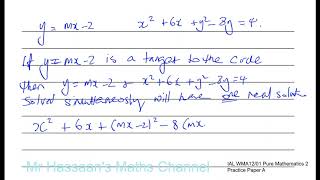 y = mx-2 x² + 6x + y² - 8y = 4.
If y = mx-2 is a target to the code
then y = mx-2 & x² + 6x + y² - 8y = 4
Solved simultaneously will have one real solution
x² + 6x + (mx-2)² - 8(mx
Mr Hassaan's Maths Channel
IAL WMA12/01 Pure Mathematics 2
Practice Paper A